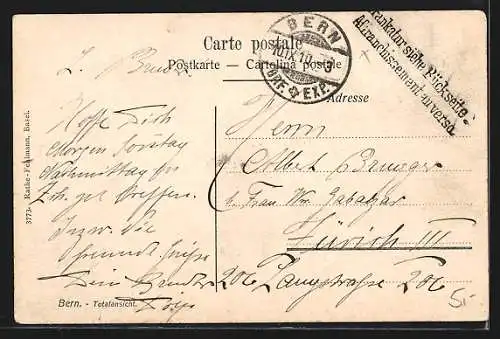 Carte postale
Postkarte — Cartolina postale
Adresse
BERN
10.IX.10.-9
BRF. EXP.
Frankatur siehe Rückseite.
Affranchissement au verso.
L. Bruder
Hoffe Dich
Morgen Sonntag
Nachmittag in
Zch. zu treffen.
Inzw. die
Grüsse
Dein Bruder
Herrn
Albert
b. Frau Wwe
Zürich III
206 Langstrasse 206
3773. Rathe-Fehlmann, Basel.
Bern. - Totalansicht.
5.-